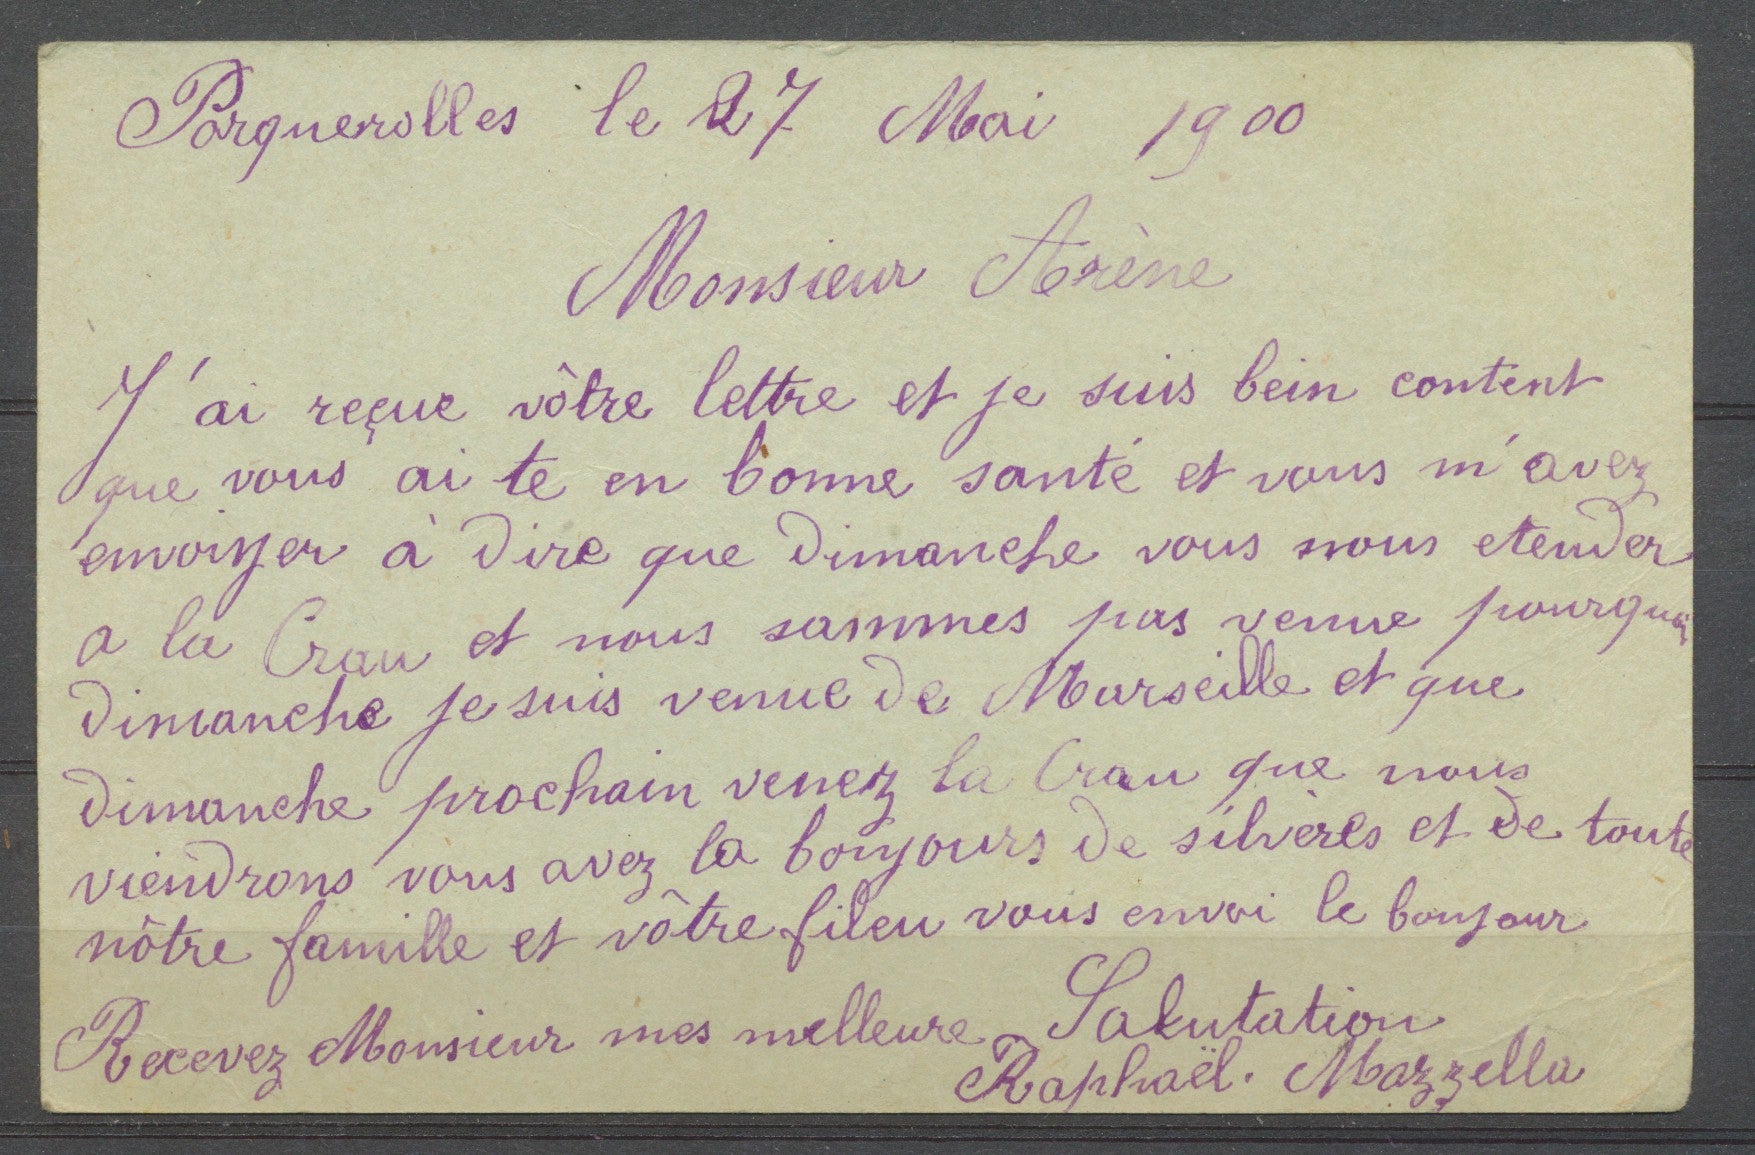 Porquerolles le 27 Mai 1900
Monsieur Arène
J'ai reçue vôtre lettre et je suis bein content
que vous ai te en bonne santé et vous m'avez
envoiyer à dire que dimanche vous nous etender
a la Crau et nous sammes pas venue pourquoi
dimanche je suis venue de Marseille et que
dimanche prochain venez la Crau que nous
viendrons vous avez la bonjours de silvères et de toute
nôtre famille et vôtre fileu vous envoi le bonjour
Recevez Monsieur mes melleure Salutation
Raphaël. Mazzella